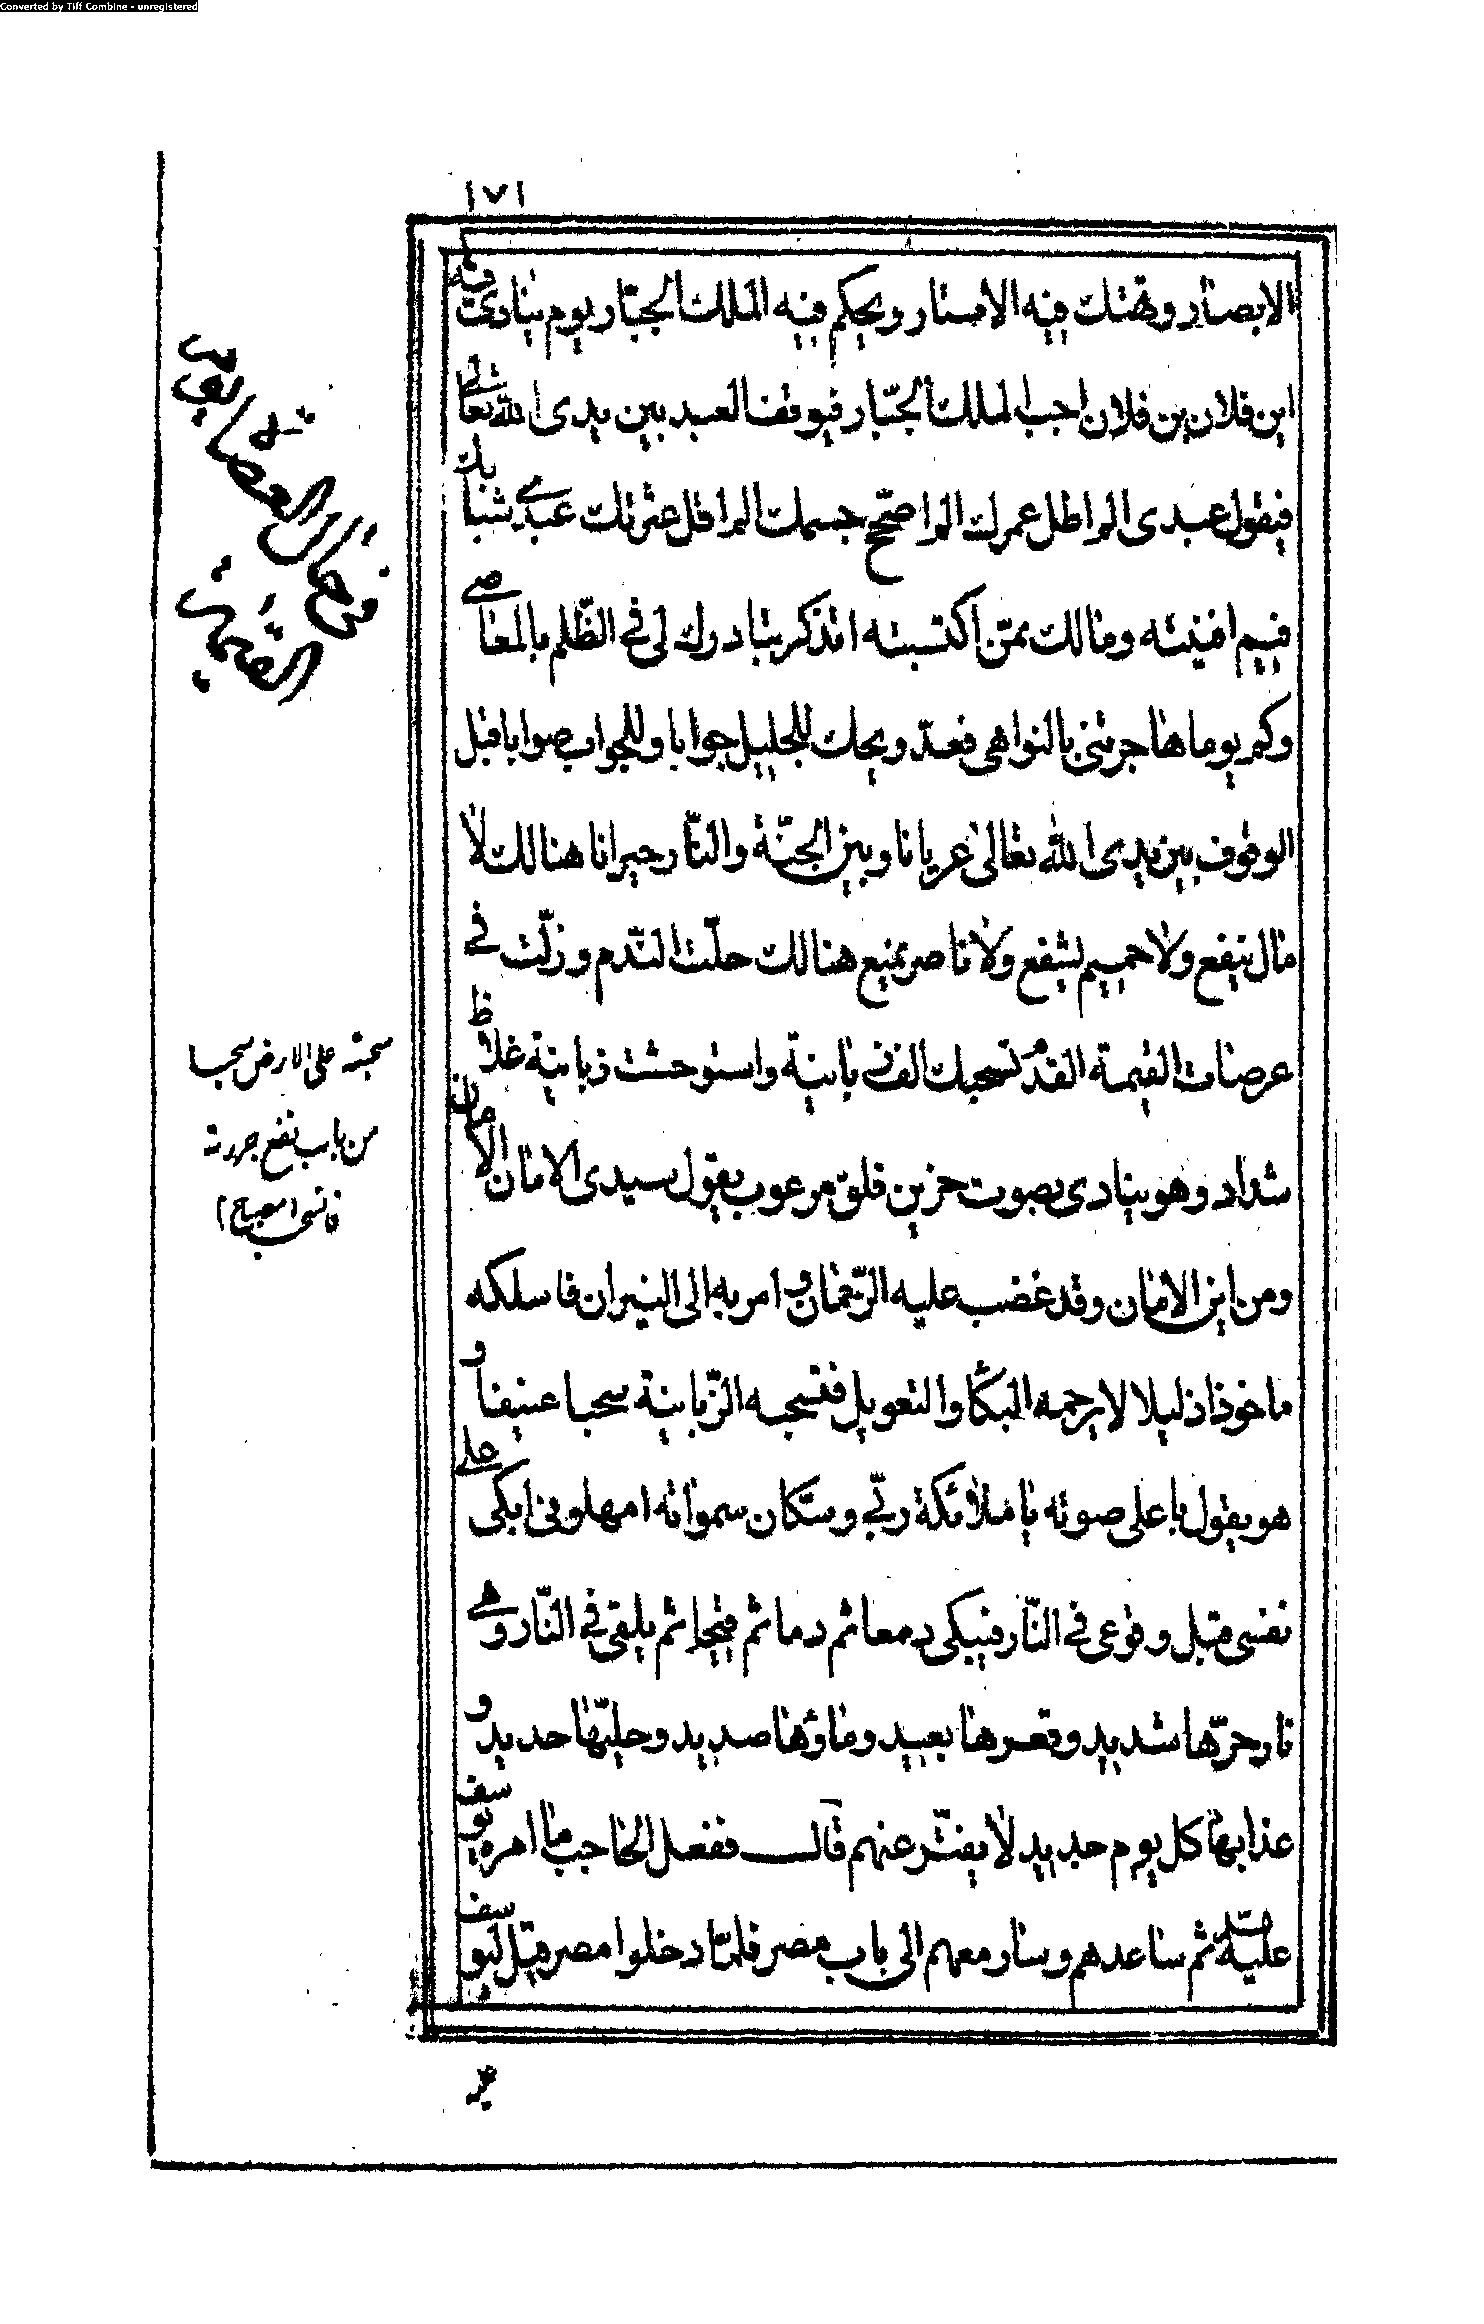 Converted by Tiff Combine - unregistered
١٧١
الابصار وتهتك فيه الاستار ويحكم فيه الملك الجبّار يوم ينادى فيه
اين فلان بن فلان اجب الملك الجبّار فيوقف العبد بين يدى الله تعالى
فيقول عبدى الم اطل عمرك الم اصحّح جسمك الم اقل عثرتك عبدى شبابك
فيم افنيته ومالك ممّن اكتسبته اتذكر بتادرك لى فى الظّلم بالمعاصى
وكم يوما هاجرتنى بالنواهى فعدّ ويحك للجليل جوابا وللجواب صوابا قبل
الوقوف بين يدى الله تعالى عريانا وبين الجنّة والنّار حيرانا هنالك لا
مال ينفع ولا حميم يشفع ولا ناصر يمنع هنالك حلّت النّدم وزلّت فى
عرصات القيمة القدم تسحبك الف زبانية واستوحشت زبانية غلاظ
شداد وهو ينادى بصوت حزين قلق مرعوب يقول سيدى الامان الامان
ومن اين الامان وقد غضب عليه الرّحمان وامر به الى النيران فاسلكه
ماخوذا ذليلا لا يرحمه البكّا والتعويل فتسحبه الزّبانية سحبا عنيفا و
هو يقول باعلى صوته يا ملائكة ربّى وسكّان سمواته امهلونى ابكى على
نفسى قبل وقوعى فى النّار فيبكى دمعا ثم دما ثم قيحا ثم يلقى فى النّار وهى
نار حرّها شديد وقعرها بعيد وماؤها صديد وحليّها حديد و
عذابها كل يوم جديد لا يفتّر عنهم قال ففعل الحاجب ما امره يوسف
عليه السّلم ثم ساعدهم وسار معهم الى باب مصر فلمّا دخلوا مصر قيل ليوسف
فى حال العصاة يوم
القيمة
سحبته على الارض سحبا
من باب نفع جررته
فانسحب (مصباح)